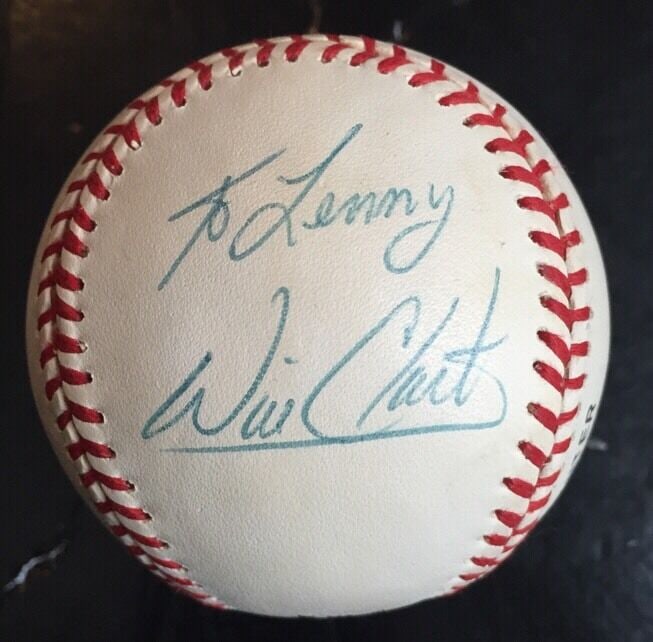 To Lenny
Will Clark
ER